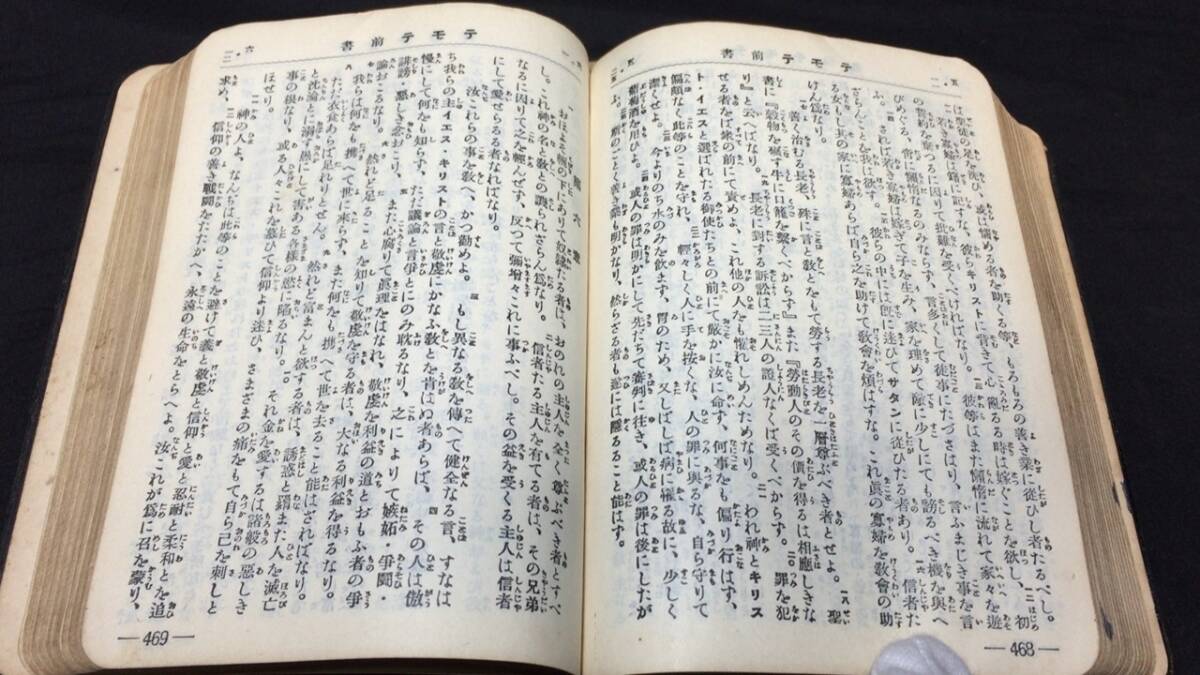 テモテ前書
は聖徒の足を洗ひ、或は惱める者を助くる等、もろもろの善き業に從ひし者たるべし。
若き寡婦は籍に記すな、彼等キリストに背きて心亂るる時は嫁ぐことを欲し、初
の誓約を棄つるに因りて批難を受くべければなり。彼等はまた懶惰に流れて家々を遊
びめぐる、啻に懶惰なるのみならず、言多くして徒事にたづさはり、言ふまじき事を言
ふ。されば若き寡婦は嫁ぎて子を生み、家を理めて敵に少しにても謗るべき機を與へ
ざらんことを我は欲す。彼らの中には既に迷ひてサタンに從ひたる者あり。信者た
る女もし其の家に寡婦あらば自ら之を助けて教會を煩はすな。これ眞の寡婦を教會の助
けん爲なり。
善く治むる長老、殊に言と教とをもて勞する長老を一層尊ぶべき者とせよ。聖
書に『穀物を碾す牛に口籠を繋くべからず』また『勞動人のその價を得るは相應しきな
り』と云へばなり。長老に對する訴訟は二三人の證人なくば受くべからず。罪を犯
せる者をば衆の前にて責めよ、これ他の人をも懼れしめんためなり。われ神とキリス
ト・イエスと選ばれたる御使たちとの前にて嚴かに汝に命ず、何事をも偏り行はず、
偏頗なく此等のことを守れ。輕々しく人に手を按くな、人の罪に與るな、自ら守りて
潔くせよ。今よりのち水のみを飮まず、胃のため、又しばしば病に罹る故に、少しく
葡萄酒を用ひよ。或人の罪は明かにして先だちて審判に往き、或人の罪は後にしたが
ふ。斯のごとく善き業も明かなり、然らざる者も遂には隱るること能はず。
468
テモテ前書
第六章
おほよそ軛の下にありて奴隷たる者は、おのれの主人を全く尊ぶべき者とすべ
し。これ神の名と教との譏られざらん爲なり。信者たる主人を有てる者は、その兄弟
なるに因りて之を輕んぜず、反つて彌增々これに事ふべし。その益を受くる主人は信者
にして愛せらるる者なればなり。
汝これらの事を教へ、かつ勸めよ。もし異なる教を傳へて健全なる言、すなは
ち我らの主イエス・キリストの言と敬虔にかなふ教とを肯はぬ者あらば、その人は傲
慢にして何をも知らず、ただ議論と言爭とにのみ耽るなり、之によりて嫉妬・爭鬪・
誹謗・惡しき念おこり、また心腐りて眞理をはなれ、敬虔を利益の道とおもふ者の爭
論おこるなり。然れど足ることを知りて敬虔を守る者は、大なる利益を得るなり。
我らは何をも携へて世に來らず、また何をも携へて世を去ること能はざればなり。
ただ衣食あらば足れりとせん。然れど富まんと欲する者は、誘惑と羂また人を滅亡
と沈淪とに溺らす愚にして害ある各樣の慾に陷るなり。それ金を愛するは諸般の惡しき
事の根なり、或る人々これを慕ひて信仰より迷ひ、さまざまの痛をもて自ら己を刺しと
ほせり。
神の人よ、なんぢは此等のことを避けて義と敬虔と信仰と愛と忍耐と柔和とを追
求め、信仰の善き戰鬪をたたかへ、永遠の生命をとらへよ。汝これが爲に召を蒙り、
469